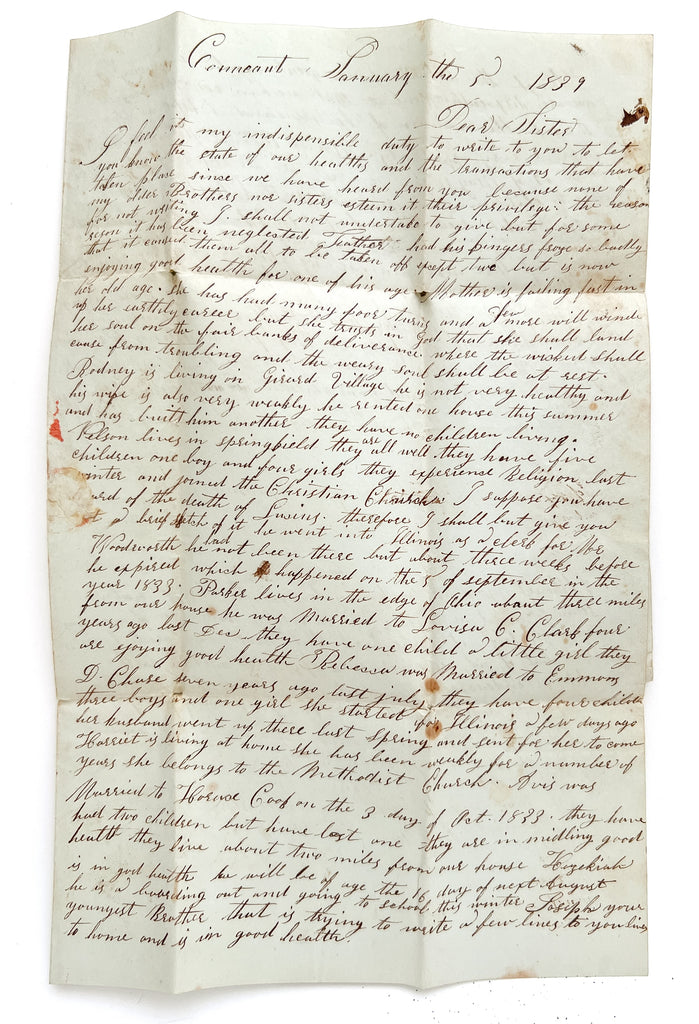 Conneaut January the 5 1839
Dear Sister
I feel it my indispensible duty to write to you to let
you know the state of our healths and the transactions that have
taken place since we have heard from you because none of
my older Brothers nor sisters esteem it their privilege: the reason
for not writing I shall not undertake to give but for some
it has been neglected Father had his fingers froze so badly
that it caused them all to be taken off except two but is now
enjoying good health for one of his age Mother is failing fast in
her old age. She has had many poor turns and a few more will wind
up her earthly career but she trusts in God that she shall land
her soul on the fair banks of deliverance where the wicked shall
cease from troubling and the weary soul shall be at rest.
Rodney is living on Girard Village he is not very healthy and
his wife is also very weakly he rented one house this summer
and has built him another they have no children living.
Nelson lives in springfield they are all well they have five
children one boy and four girls they experience Religion last
winter and joined the Christian Church I suppose you have
of the death of Lusius. therefore I shall but give you
a brief of it he went into Illinois as a clerk for Mr
Woodworth he had not been there but about three weeks before
he expired which happened on the 5 of september in the
year 1833. Parker lives in the edge of Ohio about three miles
from our house he was Married to Lovisa C. Clark four
years ago last Dec they have one child a little girl they
are ejoying good health Rebecca was Married to Emmons
D. Chase seven years ago last july they have four childn
three boys and one girl she started for Illinois a few days ago
her husband went up there last spring and sent for her to come
Harriet is living at home she has been weakly for a number of
years she belongs to the Methodist Church. Avis was
Married to Horace Cook on the 3 day of Oct. 1833. they have
had two children but have lost one they are in midling good
health they live about two miles from our house Hezekiah
is in god health he will be of age the 16 day of next August
he is a boarding out and going to school this winter Joseph your
youngest Brother that is trying to write a few lines to you lives
to home and is in good health.